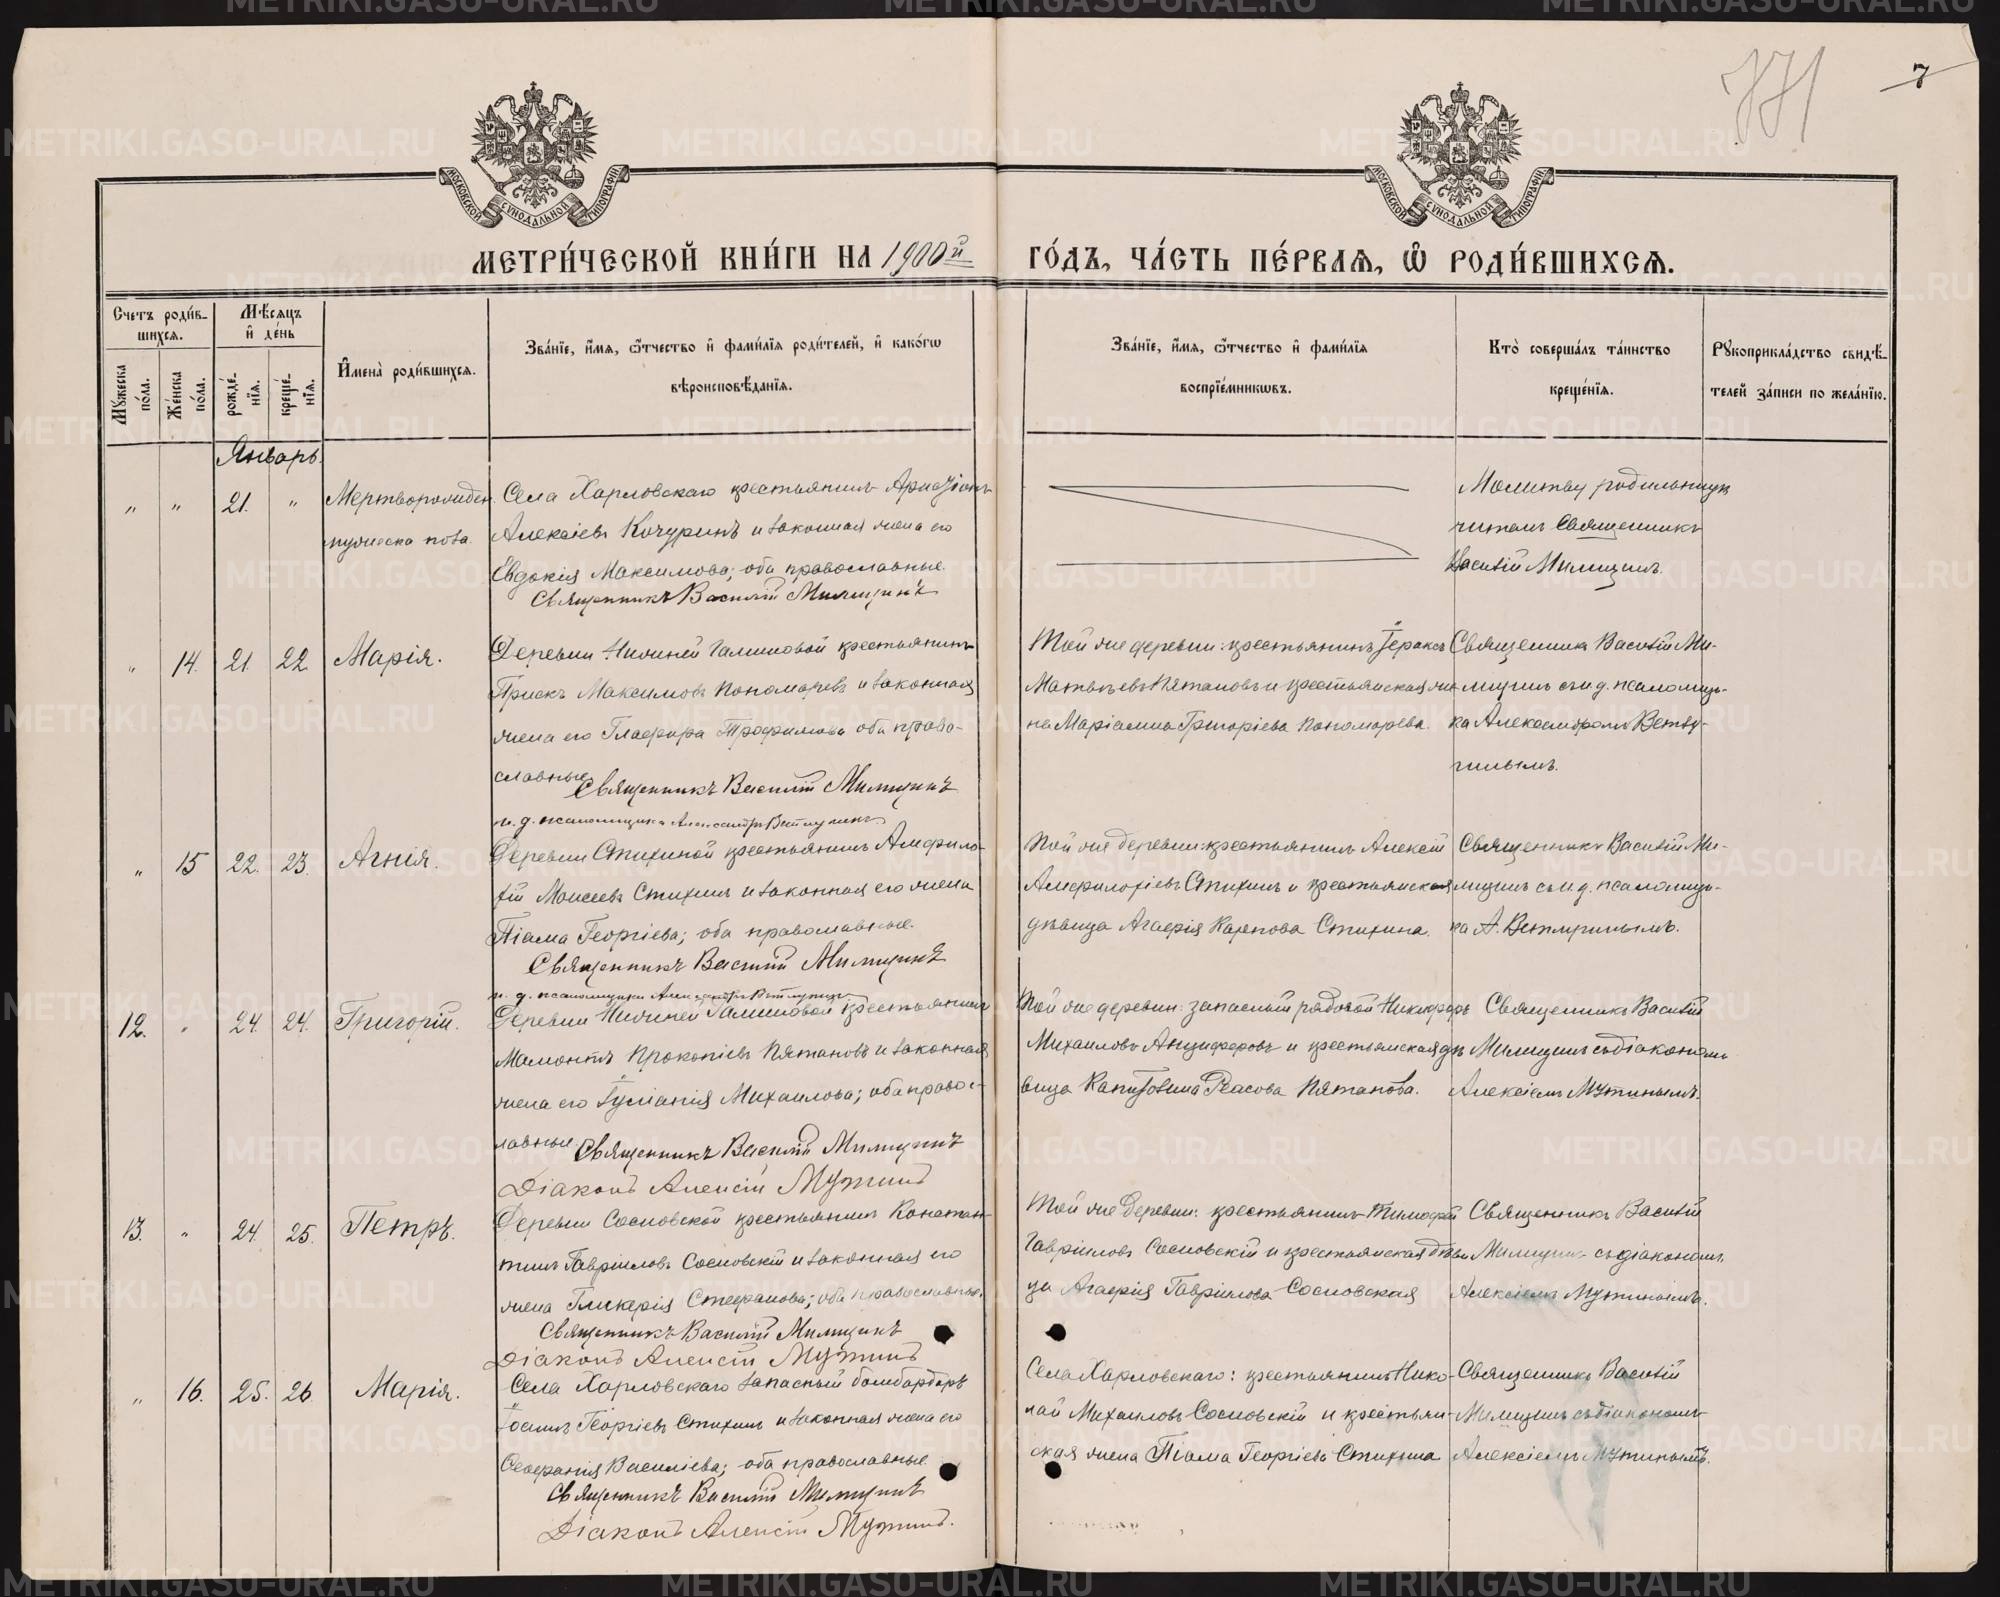 771
7
МОСКОВСКОЙ СѴНОДАЛЬНОЙ ТИПОГРАФІИ
МОСКОВСКОЙ СѴНОДАЛЬНОЙ ТИПОГРАФІИ
МЕТРИ́ЧЕСКОЙ КНИ́ГИ НА 1900й ГО́ДЪ, ЧА́СТЬ ПЕ́РВАЯ, Ѡ҆ РОДИ́ВШИХСЯ.
Счетъ роди́в-
шихся.
Мѣ́сяцъ
и҆ де́нь
Мꙋ́жеска по́ла.
Же́нска по́ла.
рожде́-
нїя.
креще́-
нїя.
И҆мена̀ роди́вшихся.
Зва́нїе, и҆́мя, ѻ҆́тчество и҆ фами́лїя роди́телей, и҆ како́гѡ
вѣроисповѣ́данїя.
Зва́нїе, и҆́мя, ѻ҆́тчество и҆ фами́лїя
воспрїе́мникѡвъ.
Кто̀ соверша́лъ та́инство
креще́нїя.
Рꙋкоприкла́дство свидѣ́-
телей за́писи по жела́нїю.
Январь.
" " 21. " Мертворожден.
мужеска пола.
Села Харловскаго крестьянинъ
Алексіевъ Кочуринъ и законная жена его
Евдокія Максимова; оба православные.
Священникъ Василій Милицинъ
Молитву родильницѣ
читалъ Священникъ
Василій Милицинъ.
" 14. 21. 22 Марія.
Деревни Нижней Галишовой крестьянинъ
Прискъ Максимовъ Пономаревъ и законная
жена его Глафира Трофимова оба право-
славные.
Священникъ Василій Милицинъ
и. д. псаломщика Александръ Ветлугинъ.
Той же деревни: крестьянинъ Іераксъ
Матвѣевъ Пятановъ и крестьянская же-
на Маріамна Григоріева Пономарева.
Священникъ Василій Ми-
лицинъ съ и. д. псаломщи-
ка Александромъ Ветлу-
гинымъ.
" 15 22. 23. Агнія.
Деревни Стихиной крестьянинъ Амфило-
хій Моисеевъ Стихинъ и законная его жена
Піама Георгіева; оба православные.
Священникъ Василій Милицинъ
и. д. псаломщика Александръ Ветлугинъ
Той же деревни: крестьянинъ Алексій
Амфилохіевъ Стихинъ и крестьянская
дѣвица Агафія Карпова Стихина.
Священникъ Василій Ми-
лицинъ съ и. д. псаломщи-
ка А. Ветлугинымъ.
12. " 24. 24. Григорій.
Деревни Нижней Галишовой крестьянинъ
Мамонтъ Прокопіевъ Пятановъ и законная
жена его Іуліанія Михаилова; оба правос-
лавные.
Священникъ Василій Милицинъ
Діаконъ Алексій Мутинъ
Той же деревни: запасный рядовой Никифоръ
Михаиловъ Анциферовъ и крестьянская дѣ-
вица Капитолина Власова Пятанова.
Священникъ Василій
Милицинъ съ діакономъ
Алексіемъ Мутинымъ.
13. " 24. 25. Петръ.
Деревни Сосновской крестьянинъ Констан-
тинъ Гавріиловъ Сосновскій и законная его
жена Гликерія Стефанова; оба православные.
Священникъ Василій Милицинъ
Діаконъ Алексій Мутинъ
Той же деревни: крестьянинъ Тимофей
Гавріиловъ Сосновскій и крестьянская дѣви-
ца Агафія Гавріилова Сосновская
Священникъ Василій
Милицинъ съ діакономъ
Алексіемъ Мутинымъ.
" 16. 25. 26 Марія.
Села Харловскаго запасный бомбардиръ
Іоаннъ Георгіевъ Стихинъ и законная жена его
Василіева; оба православные.
Священникъ Василій Милицинъ
Діаконъ Алексій Мутинъ.
Села Харловскаго: крестьянинъ Нико-
лай Михаиловъ Сосновскій и крестьян-
ская жена Піама Георгіева Стихина
Священникъ Василій
Милицинъ съ діакономъ
Алексіемъ Мутинымъ.
METRIKI.GASO-URAL.RU